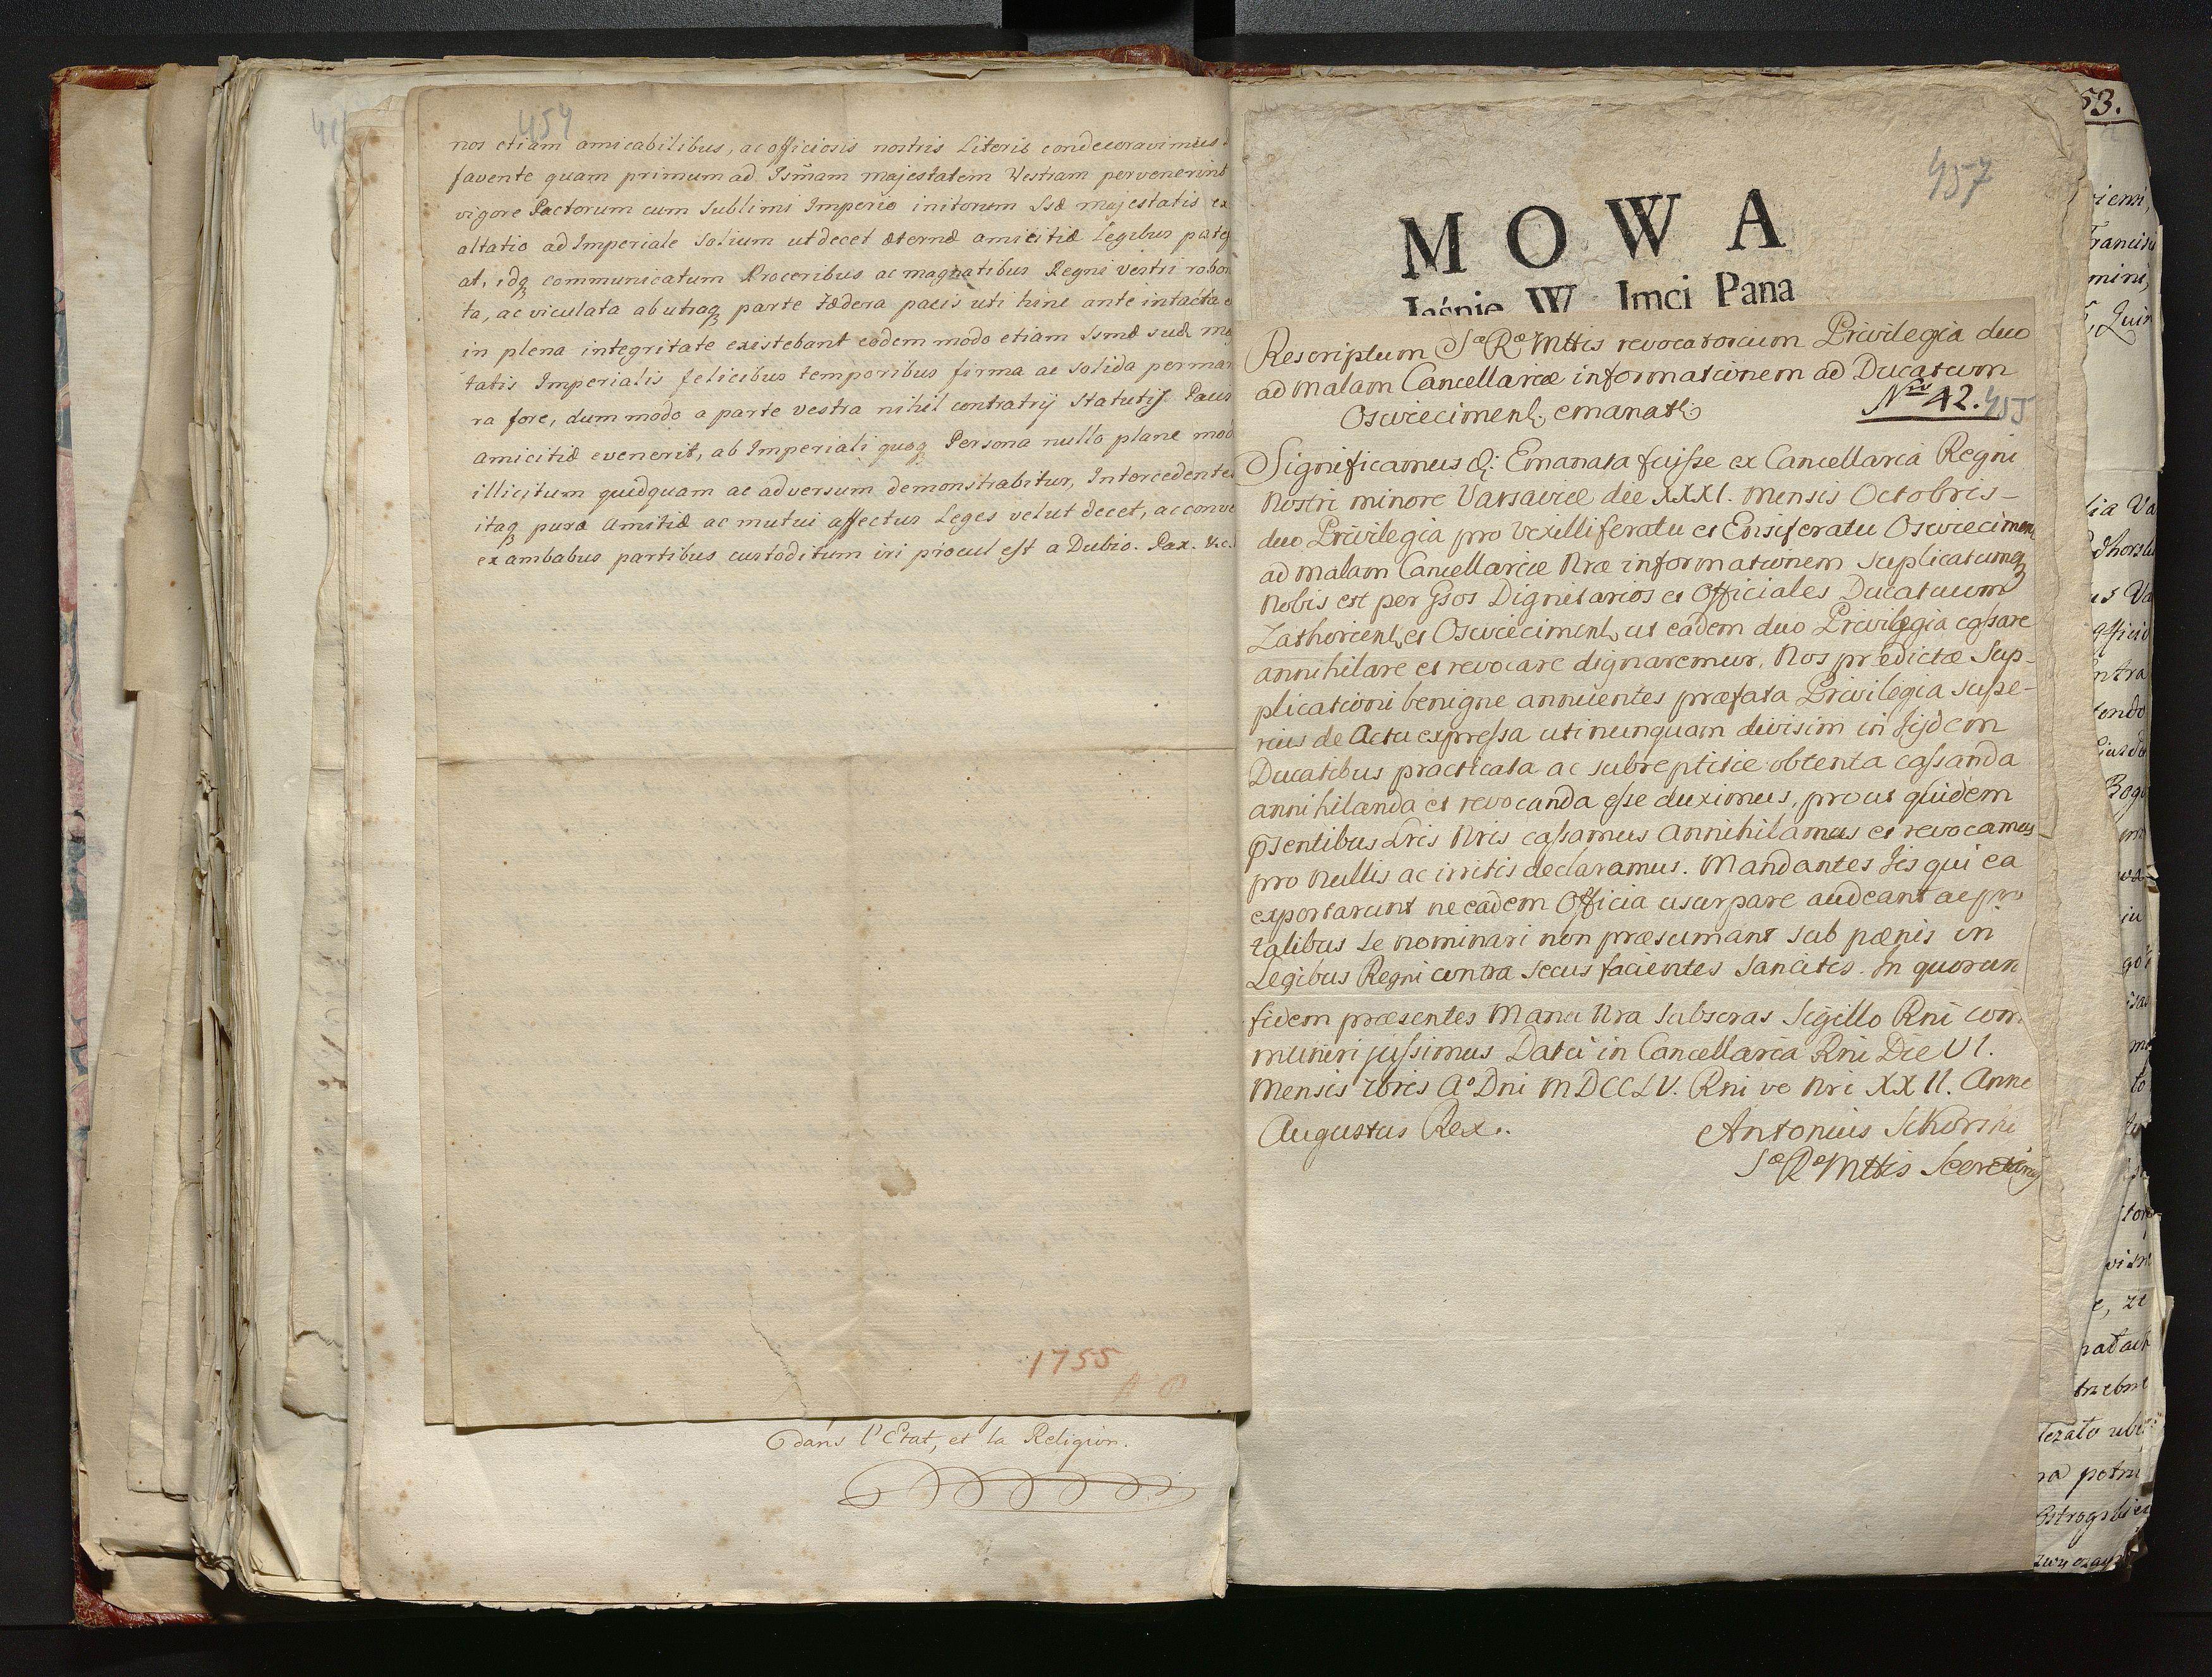 454
nos etiam amicabilibus, ac officiosis nostris Literis condecoravimus
favente quam primum ad Ismam majestatem Vestram pervenerint
vigore Pactorum cum Sublimi Imperio initorum Ssæ majestatis ex
altatio ad Imperiale Solium ut decet æternæ amicitiæ Legibus pateq
at, idq communicatum Proceribus ac magnatibus Regni vestri robor
ta, ac viculata ab utraq parte fædera pacis uti hinc ante intacta
in plena integritate existebant eodem modo etiam Ssmæ suæ ma
tatis Imperialis felicibus temporibus firma ac solida perman
ra fore, dummodo a parte vestra nihil contratrij Statutis Pacis
amicitiæ evenerit, ab Imperiali quoq Persona nullo plane mod
illicitum quidquam ac adversum demonstrabitur, Intercedentes
itaq puræ amitiæ ac mutui affectus Leges velut decet, ac conve
ex ambabus partibus custoditum iri procul est a Dubio. Pax. &c.
1755
dans l'Etat, et la Religion.
457
MOWA
Jaśnie W Imci Pana
Rescriptum Sæ Ræ Mttis revocatorium Privilegia duo
ad malam Cancellariæ informationem ad Ducatum
Oswiecimenl emanatl
Nro 42. 455
Significamus &: Emanata fuisse ex Cancellaria Regni
Nostri minore Varsaviæ die XXXI. Mensis Octobris
duo Privilegia pro Vexilliferatu et Ensiferatu Oswiecimen
ad malam Cancellariæ Nræ informationem suplicatumq
Nobis est per Ipsos Dignitarios et Officiales Ducatuum
Zathorienl et Oswiecimenl ut eadem duo Privilegia cassare
annihilare et revocare dignaremur. Nos prædictæ Sup-
plicationi benigne annuentes præfata Privilegia supe-
rius de Actu expressa uti nunquam divisim in Iisdem
Ducatibus practicata ac subreptitie obtenta cassanda
annihilanda et revocanda esse duximus, prout quidem
psentibus Lris Nris cassamus Annihilamus et revocamus
pro Nullis ac irritis declaramus. Mandantes Iis qui ea
exportarunt ne eadem Officia usurpare audeant ac pro
talibus se nominari non præsumant sub pœnis in
Legibus Regni contra secus facientes Sancitis. In quorum
fidem præsentes Manu Nra Subscras Sigillo Rni com
muniri jussimus Datū in Cancellaria Rni Die VI.
Mensis Xbris A° Dni MDCCLV. Rni vo Nri XXII. Anno
Augustus Rex.
Antonius Sikorski
Sæ Ræ Mttis Secretarius